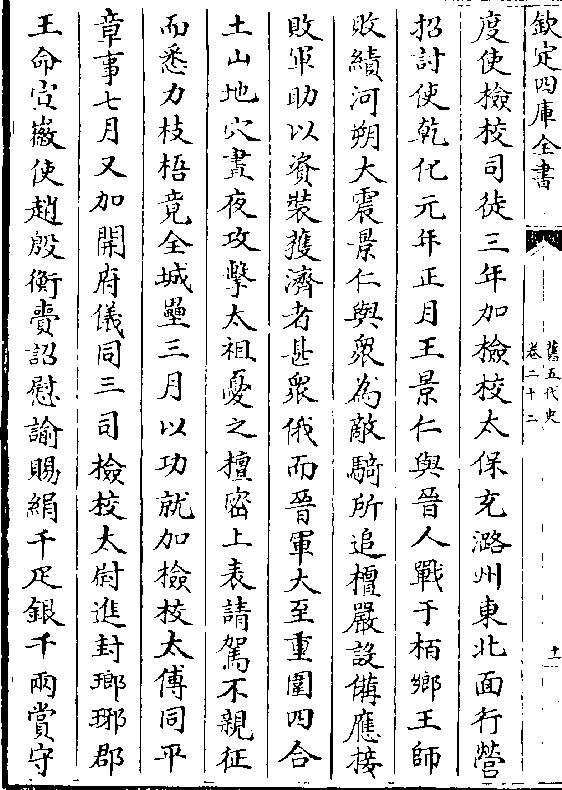 欽定四庫全書
舊五代史
卷二十二
十一
度使檢校司徒三年加檢校太保充潞州東北面行營
招討使乾化元年正月王景仁與晉人戰于栢鄉王師
敗績河朔大震景仁與衆為敵騎所追檀嚴設備應接
敗軍助以資裝獲濟者甚衆俄而晉軍大至重圍四合
土山地穴晝夜攻擊太祖憂之檀密上表請駕不親征
而悉力枝梧竟全城壘三月以功就加檢校太傅同平
章事七月又加開府儀同三司檢校太尉進封瑯琊郡
王命宣徽使趙殷衡賷詔慰諭賜絹千疋銀千兩賞守